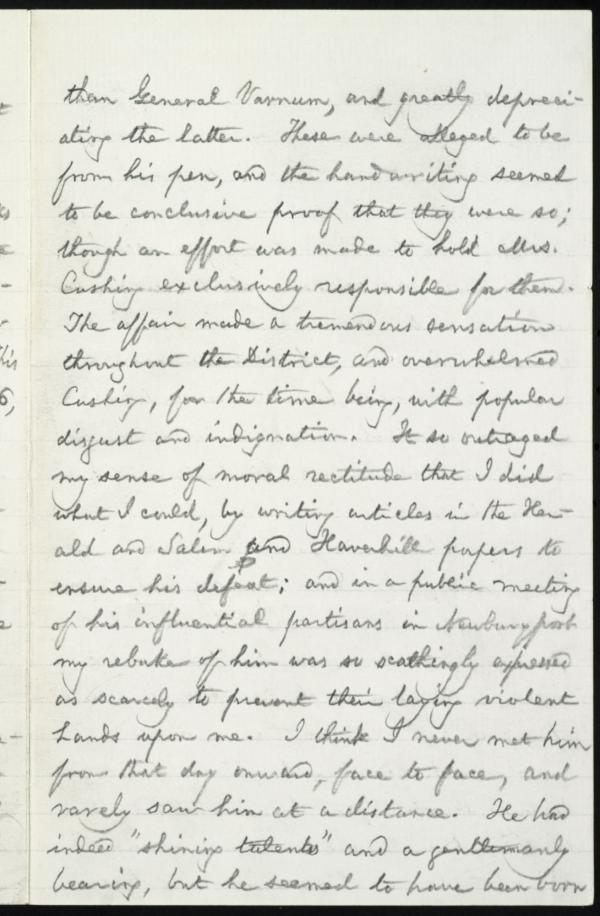 than General Varnum, and greatly depreci-
ating the latter. These were alleged to be
from his pen, and the handwriting seemed
to be conclusive proof that they were so;
though an effort was made to hold Mrs.
Cushing exclusively responsible for them.
The affair made a tremendous sensation
throughout the District, and overwhelmed
Cushing, for the time being, with popular
disgust and indignation. It so outraged
my sense of moral rectitude that I did
what I could, by writing articles in the Her-
ald and Salem and Haverhill papers to
ensure his defeat; and in a public meeting
of his influential partisans in Newburyport
my rebuke of him was so scathingly expressed
as scarcely to prevent their laying violent
hands upon me. I think I never met him
from that day onward, face to face, and
rarely saw him at a distance. He had
indeed "shining talents" and a gentlemanly
bearing, but he seemed to have been born
his
6,